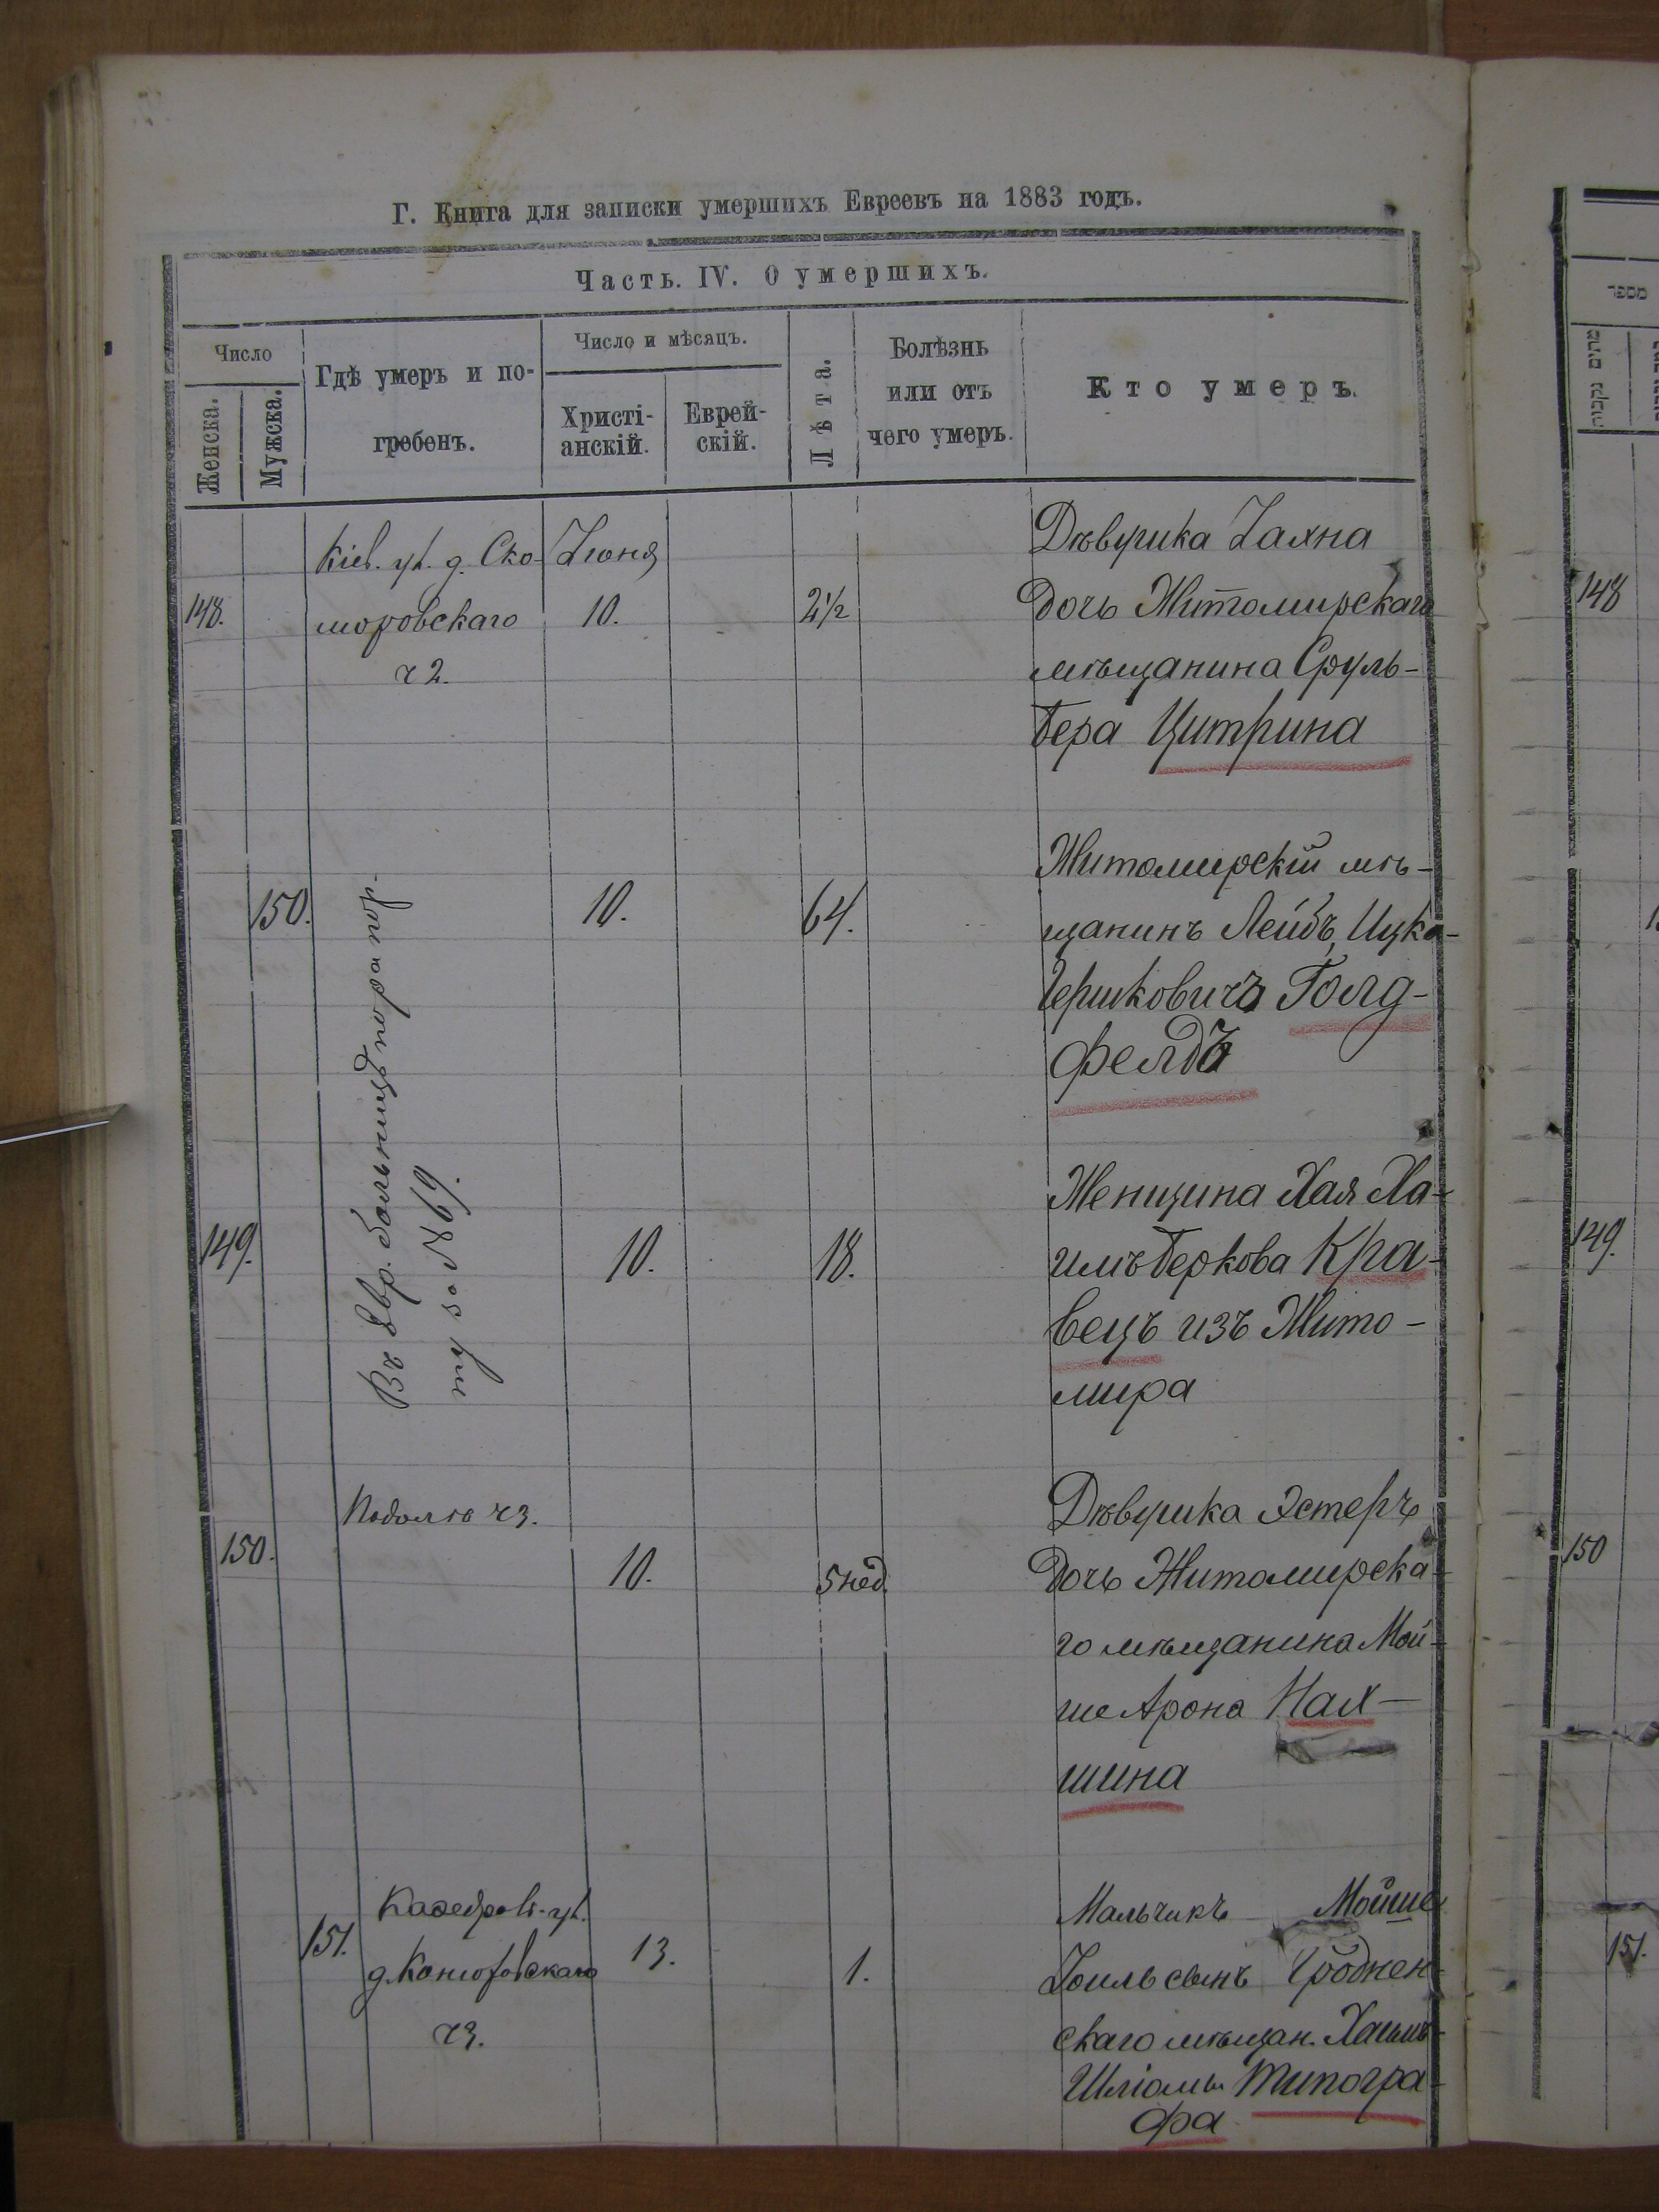 Г. Книга для записки умершихъ Евреевъ на 1883 годъ.
Часть. IV. О умершихъ.
Число
Женска.
Мужска.
Гдѣ умеръ и по-
гребенъ.
Число и мѣсяцъ.
Христі-
анскій.
Еврей-
скій.
Лѣта.
Болѣзнь
или отъ
чего умеръ.
Кто умеръ.
148.
Кіев. ул. д. Ско-
моровскаго
ч 2.
Іюня
10.
2 1/2
Дѣвушка
дочь Житомирскаго
мѣщанина Сруль-
бера Цитрина
150.
Въ Евр. больницѣ по рапор-
ту за № 69.
10.
64.
Житомирскій мѣ-
щанинъ Лейбъ Ицко-
Гершковичъ Голд-
фелдъ
149.
10.
18.
Женщина Хая Ха-
имъ Беркова Кра-
вецъ изъ Жито-
мира
150.
Подолъ ч 3.
10.
5 нед.
Дѣвушка Эстеръ
дочь Житомирска-
го мѣщанина Мой-
ше Арона Нах-
шина
151.
Каѳедрал. ул.
ч 3.
13.
1.
Мальчикъ Мойше
Іоиль сынъ Гроднен-
скаго мѣщан. Хаимъ-
Шліомы Типогра-
фа
148
149.
150
151.
מספר